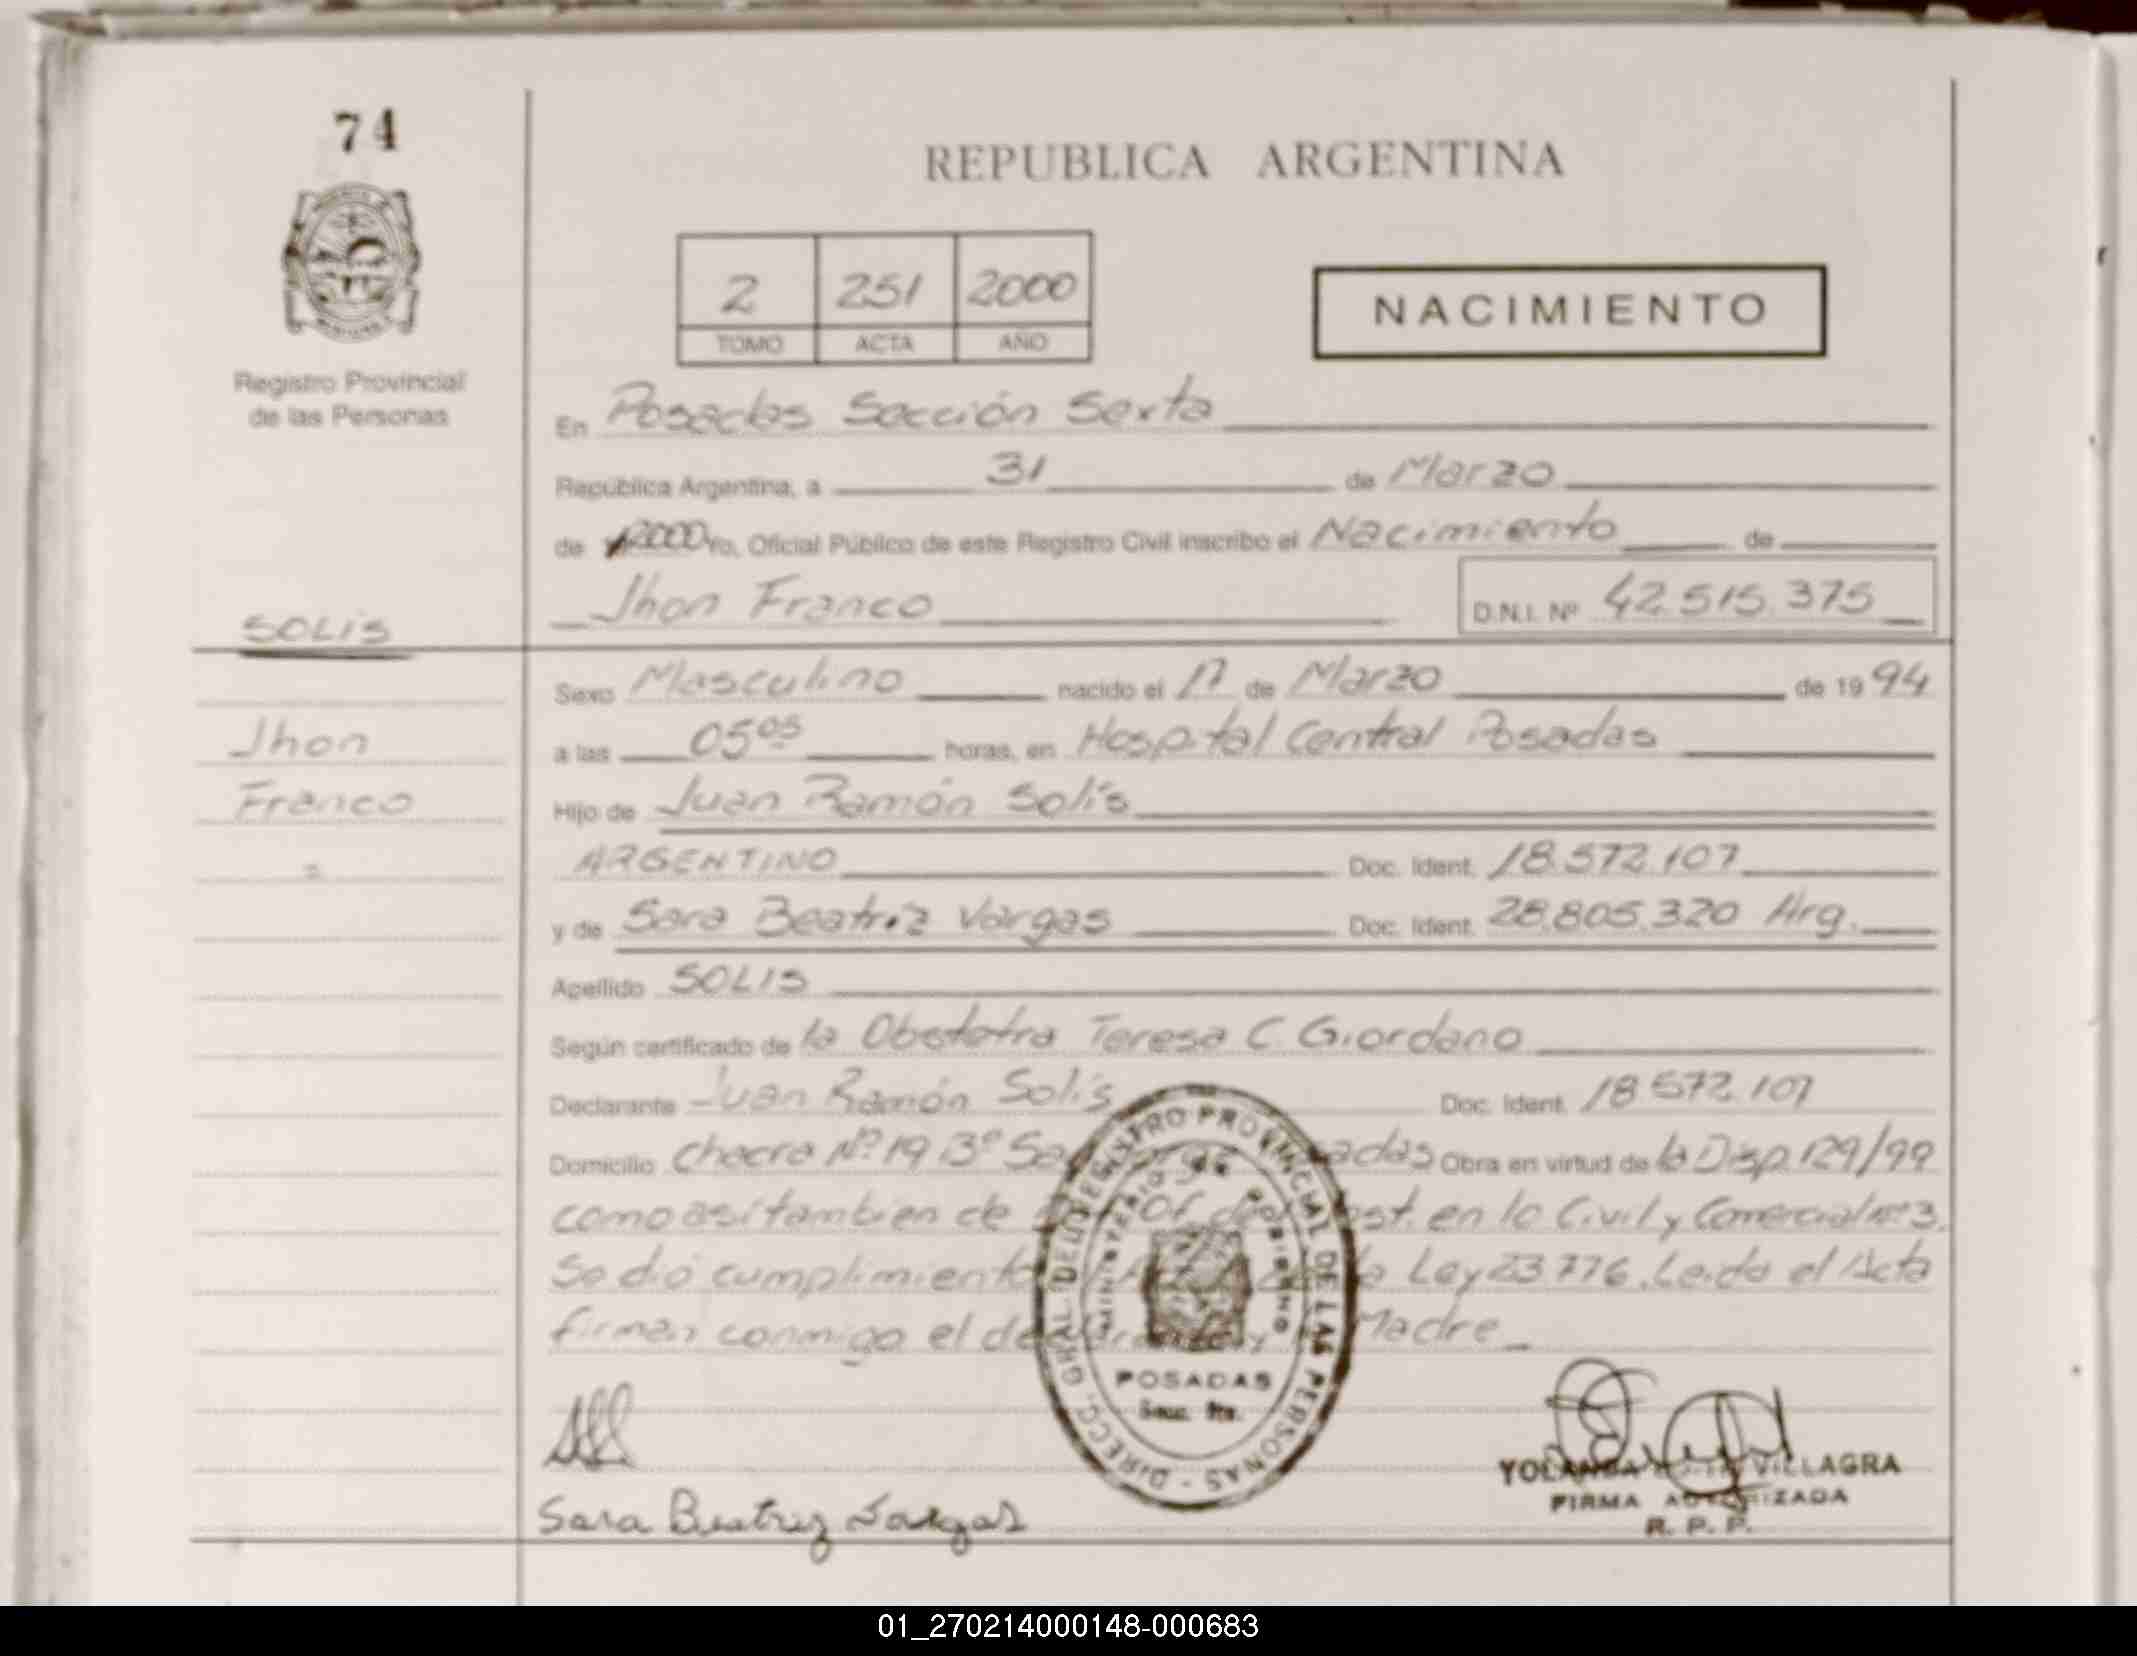 74
REPUBLICA ARGENTINA
2 251 2000
TOMO ACTA AÑO
NACIMIENTO
Registro Provincial
de las Personas
En Posadas Sección Sexta
República Argentina, a 31 de Marzo
de 2000 Yo, Oficial Público de este Registro Civil inscribo el Nacimiento de
Jhon Franco D.N.I. Nº 42.515.375
SOLIS
Sexo Masculino nacido el 17 de Marzo de 19 94
Jhon
a las 05 05 horas, en Hospital Central Posadas
Franco
Hijo de Juan Ramón Solís
ARGENTINO Doc. Ident. 18.572.107
y de Sara Beatriz Vargas Doc. Ident. 28.805.320 Arg.
Apellido SOLIS
Según certificado de la Obstetra Teresa C Giordano
Declarante Juan Ramón Solís Doc. Ident. 18 572.107
Domicilio Chacra Nº 19 Obra en virtud de la Disp. 129/99
como asi tambien de Of. en lo Civil y Comercial nº 3.
Se dió cumplimiento Ley 23776. Leida el Acta
firman conmigo el Madre
DIRECC. GRAL. DEL REGISTRO PROVINCIAL DE LAS PERSONAS
MINISTERIO DE GOBIERNO
POSADAS
Secc. 6ta.
Sara Beatriz Vargas
YOLANDA VILLAGRA
FIRMA AUTORIZADA
R. P. P.
01_270214000148-000683